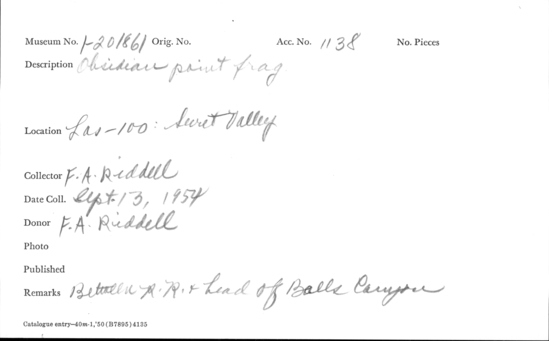 Museum No. 1-201861 Orig. No. Acc. No. 1138 No. Pieces
Description Obsidian point frag
Location Las-100: Secret Valley
Collector F.A. Riddell
Date Coll. Sept. 13, 1954
Donor F.A. Riddell
Photo
Published
Remarks Between R.R. & head of Balls Canyon
Catalogue entry—40m-1,'50 (B7895) 4135